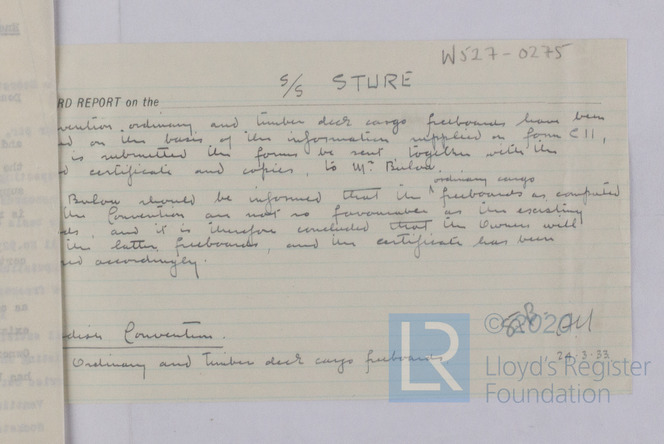 W527-0275
S/S STURE
RD REPORT on the
vention ordinary and timber deck cargo freeboards have been
d on the basis of the information supplied on form C11,
is submitted the forms be sent, together with the
d certificate and copies, to Mr. Bulow.
ordinary cargo
Bulow should be informed that the ^ freeboards as computed
the Convention are not so favourable as the existing
ds, and it is therefore concluded that the Owners will
the latter freeboards, and the certificate has been
ed accordingly.
edish Convention.
Ordinary and timber deck cargo freeboards
24.3.33
LR
© 2020
Lloyd's Register
Foundation